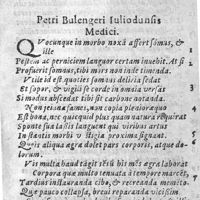 Petri Bulengeri Iuliodunsis
Medici.
QVocunque in morbo noxâ affert somus, &
ille
Pestem ac perniciem languor certam inuehit. At si
Profuerit somnus, tibi mors non inde timenda.
Vtile id est, quoties somnus deliria sedat
Et sopor, & vigil se corde in omnia versās
Si modus abscedat tibi sit carbone notanda.
Non ieiuna fames, non copia plenior aequo
Est bona, nec quicquid plus quam natura reposcit
Sponte sua lassi languent qui viribus artus
Instantis morbi
Quęis aliqua dolet pars corporis, atque
Vis multa haud tāgit
Corpora quae multo tenuata è tempore marcēt,
Tardius instauranda cibo, & recreanda memēto.
Que pauco collapsa, breui reparanda vicissim.